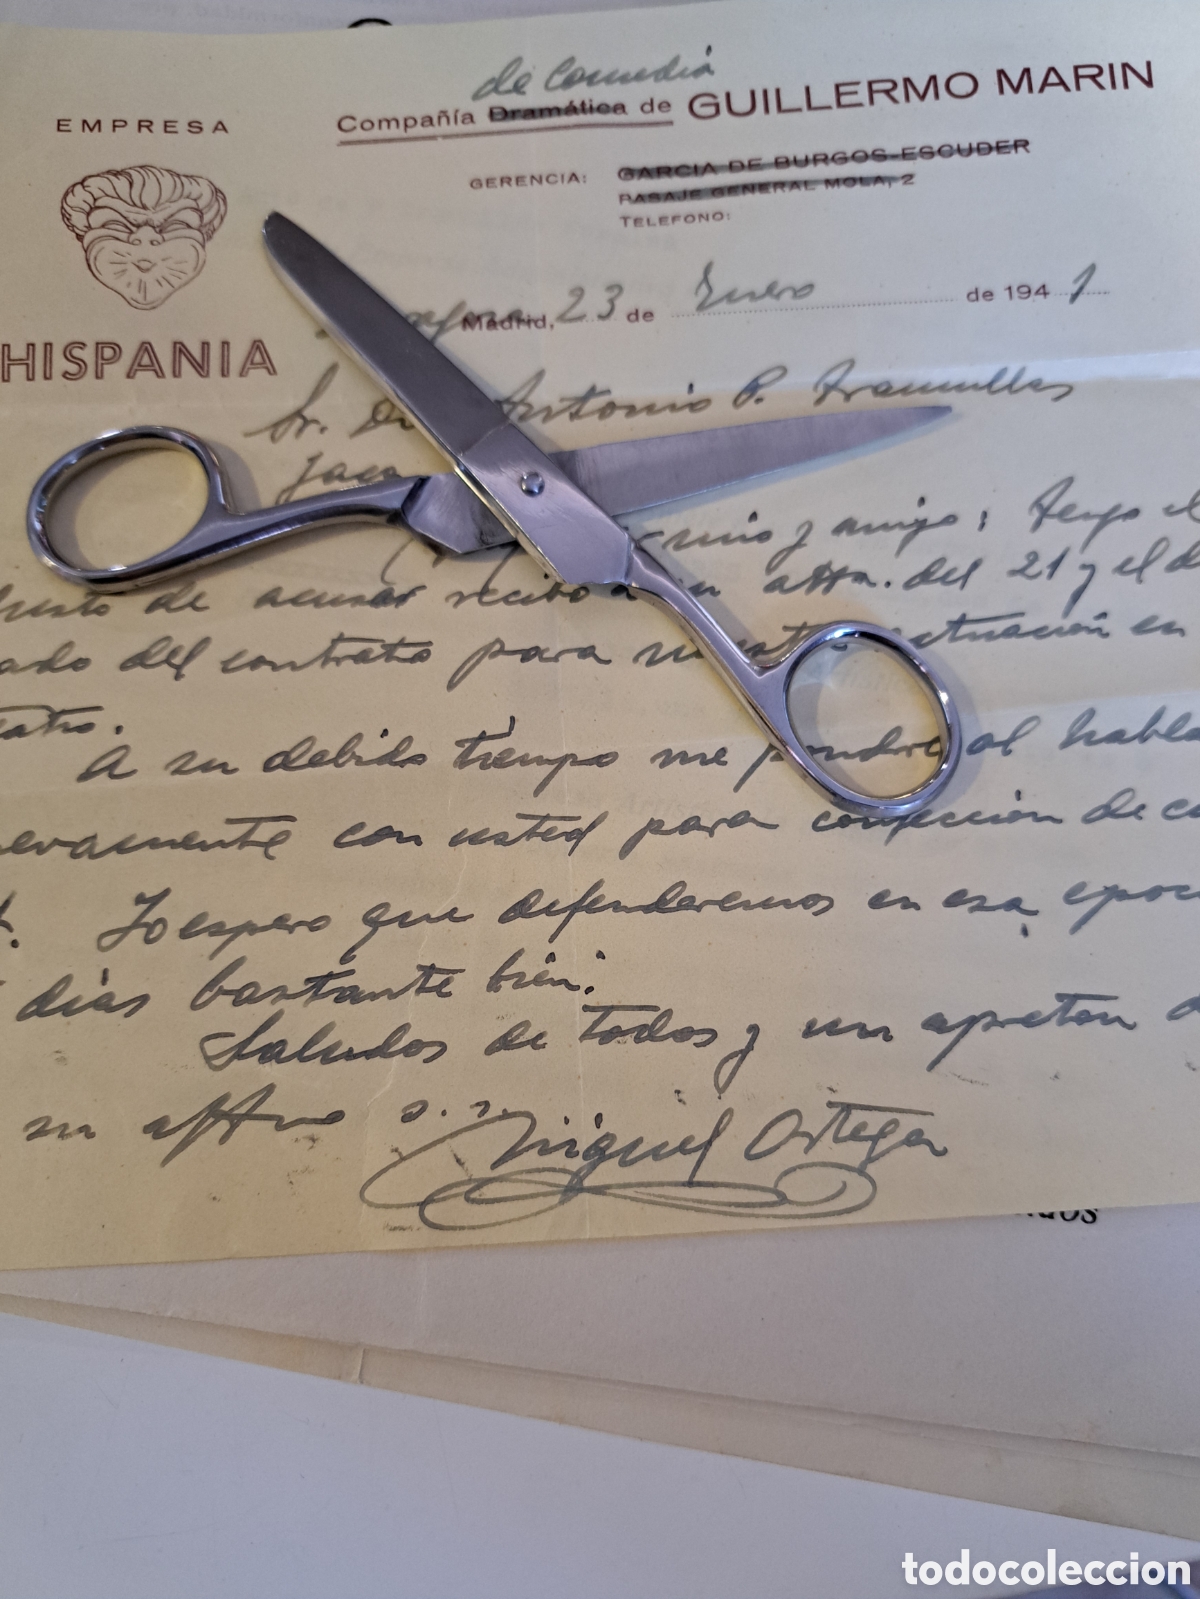 de Comedia
EMPRESA
Compañía Dramática de GUILLERMO MARIN
GERENCIA: GARCIA DE BURGOS-ESCUDER
PASAJE GENERAL MOLA, 2
TELEFONO:
Madrid, 23 de Enero de 1941
HISPANIA
Sr. D. Antonio P. Tramullas
Jaca
mio y amigo; tengo el
gusto de acusar recibo a su atta. del 21 y el d
ado del contrato para nuestra actuación en
eatro.
A su debido tiempo me pondré al habla
nuevamente con usted para confección de ca
t. Yo espero que defenderemos en esa epoca
días bastante bien.
Saludos de todos y un apreton d
su affmo s.s.
Miguel Ortega
todocoleccion